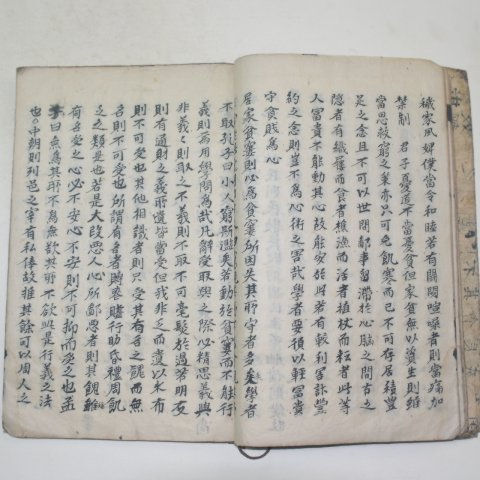 織密風婢僕當令和睦若有鬪鬩喧噪者則當痛加
禁制 君子憂道不當憂貧但家貧無以資生則雖
當思救窮之策亦只可免飢寒而已不可存居積豊
足之念且不可以世間鄙事留滯於心脇之間古之
隱者有織屨而食者樵漁而活者植杖而耘者此等
人富貴不能動其心故能安於此若有較利害計豊
約之念則豈不爲心術之害哉學者要須以輕富貴
守貧賤爲心
居家貧窶則必爲貧窶所困失其所守者多矣學者
不取孔子曰小人窮斯濫矣若動於貧窶而不能行
義則焉用學問爲哉凡辭受取與之際必精思義與
非義義則取之不義則不取不可毫髮放過若明友
則有通財之義所遺皆當受但我非乏而遺以米布
則不可受也其他相識者則只受其有名之饋而無
名則不可受也所謂有名者賻喪贐行助婚禮周飢
乏之類是也若是大段惡人心所鄙惡者則其饋雖
有名受之心必不安心不安則不可抑而受之也孟
子曰無爲其所不爲無欲其所不欲此是行義之法
也中朝則列邑之宰有私俸故推其餘可以周人之